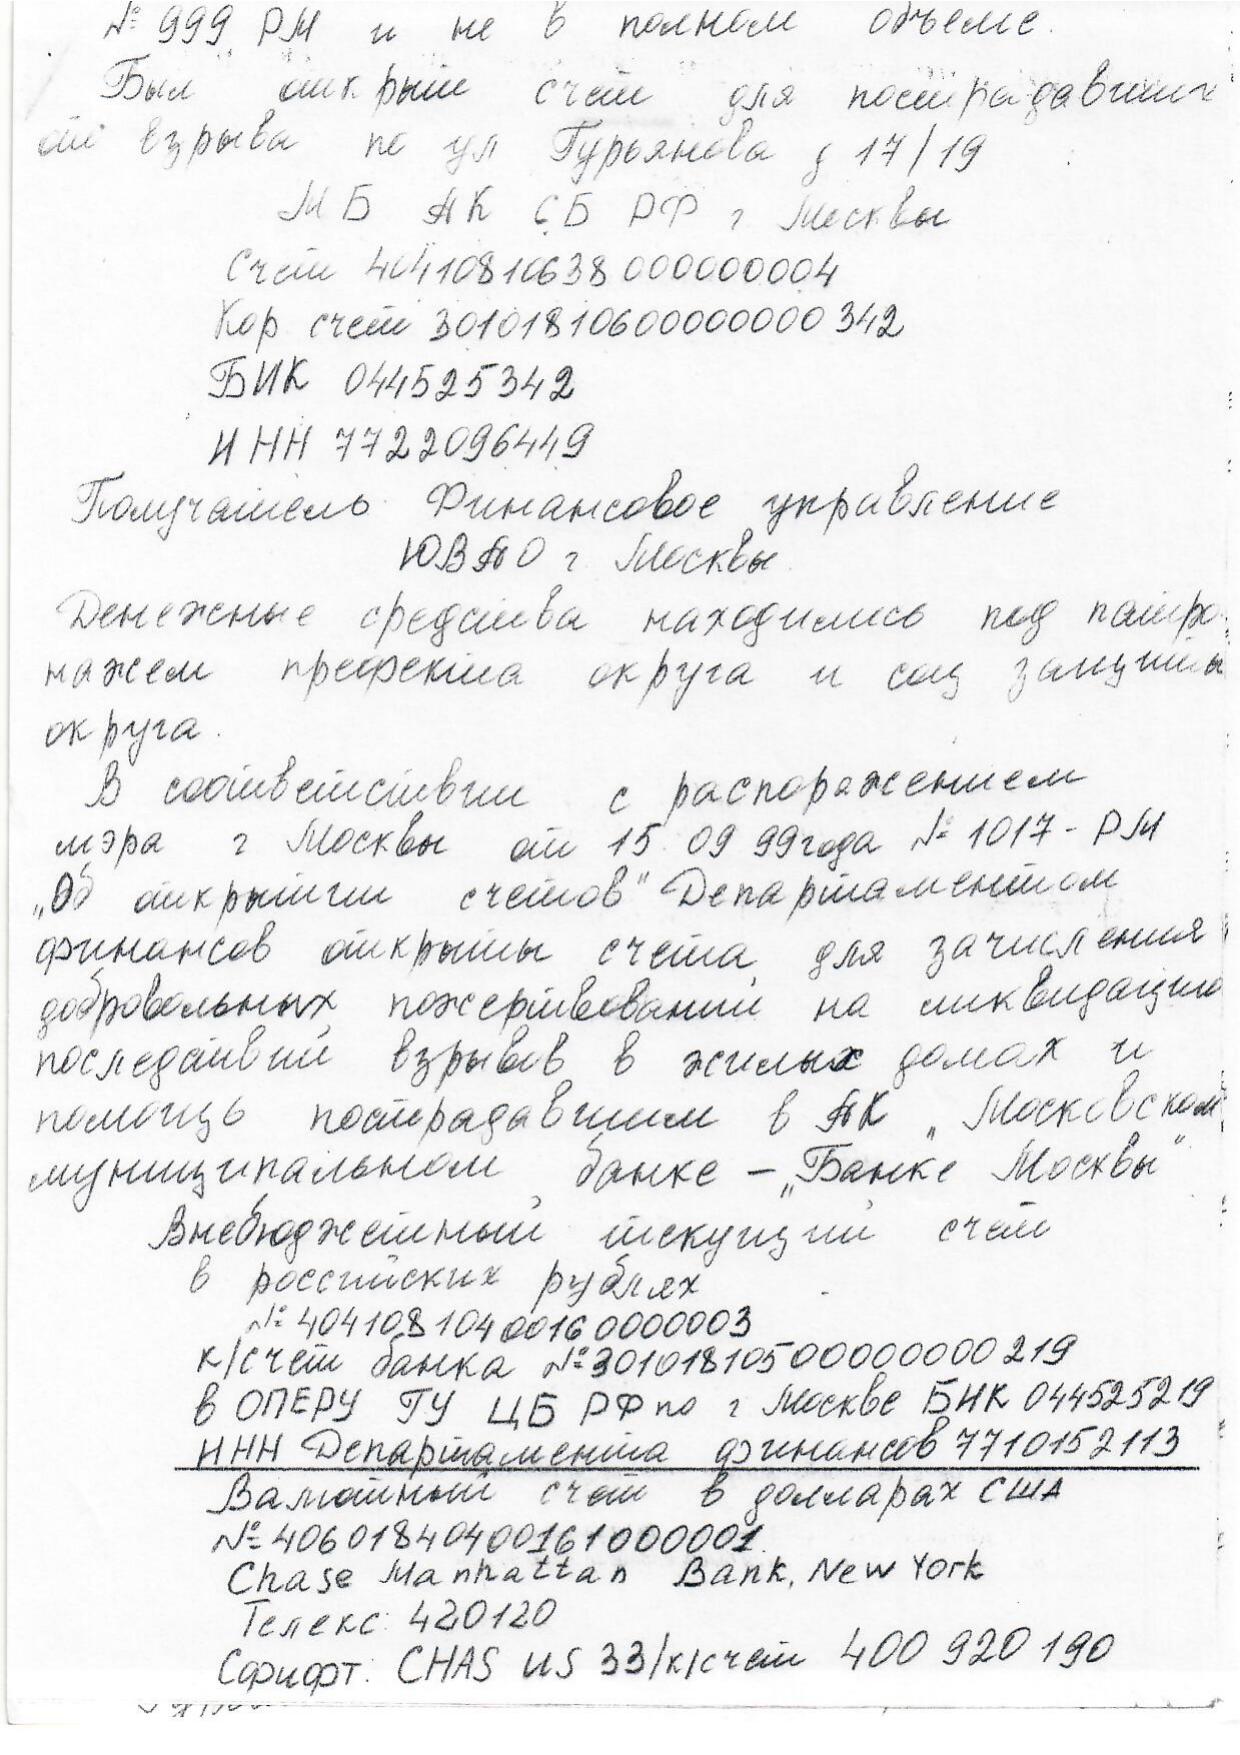 № 999 РМ и не в полном объеме.
Был открыт счет для пострадавших
от взрыва по ул Гурьянова д 17/19
МБ АК СБ РФ г Москвы
Счет 40410810638000000004
Кор счет 30101810600000000342
БИК 044525342
ИНН 7722096449
Получатель Финансовое управление
ЮВАО г. Москвы
Денежные средства находились под патро-
нажем префекта округа и соц защиты
округа.
В соответствии с распоряжением
мэра г Москвы от 15.09 99года № 1017-РМ
„Об открытии счетов" Департаментом
финансов открыты счета для зачисления
добровольных пожертвований на ликвидацию
последствий взрывов в жилых домах и
помощь пострадавшим в АК „Московском
муниципальном банке – „Банке Москвы"
Внебюджетный текущий счет
в российских рублях
№ 40410810400160000003
к/счет банка № 30101810500000000219
в ОПЕРУ ГУ ЦБ РФ по г Москве БИК 044525219
ИНН Департамента финансов 7710152113
Валютный счет в долларах США
№ 40601840400161000001.
Chase Manhattan Bank, New York
Телекс: 420120
Сфифт. CHAS US 33/к/счет 400 920 190